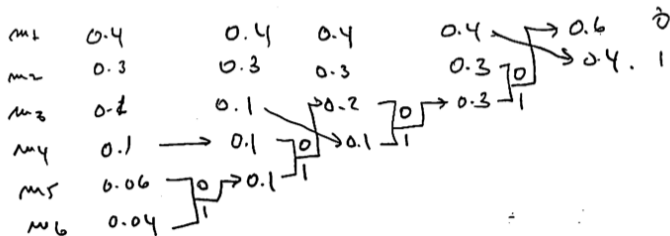 m1 0.4 0.4 0.4 0.4 0.6 0
m2 0.3 0.3 0.3 0.3 0 0.4. 1
m3 0.1 0.1 0.2 0 0.3 1
m4 0.1 0.1 0 0.1 1
m5 0.06 0 0.1 1
m6 0.04 1